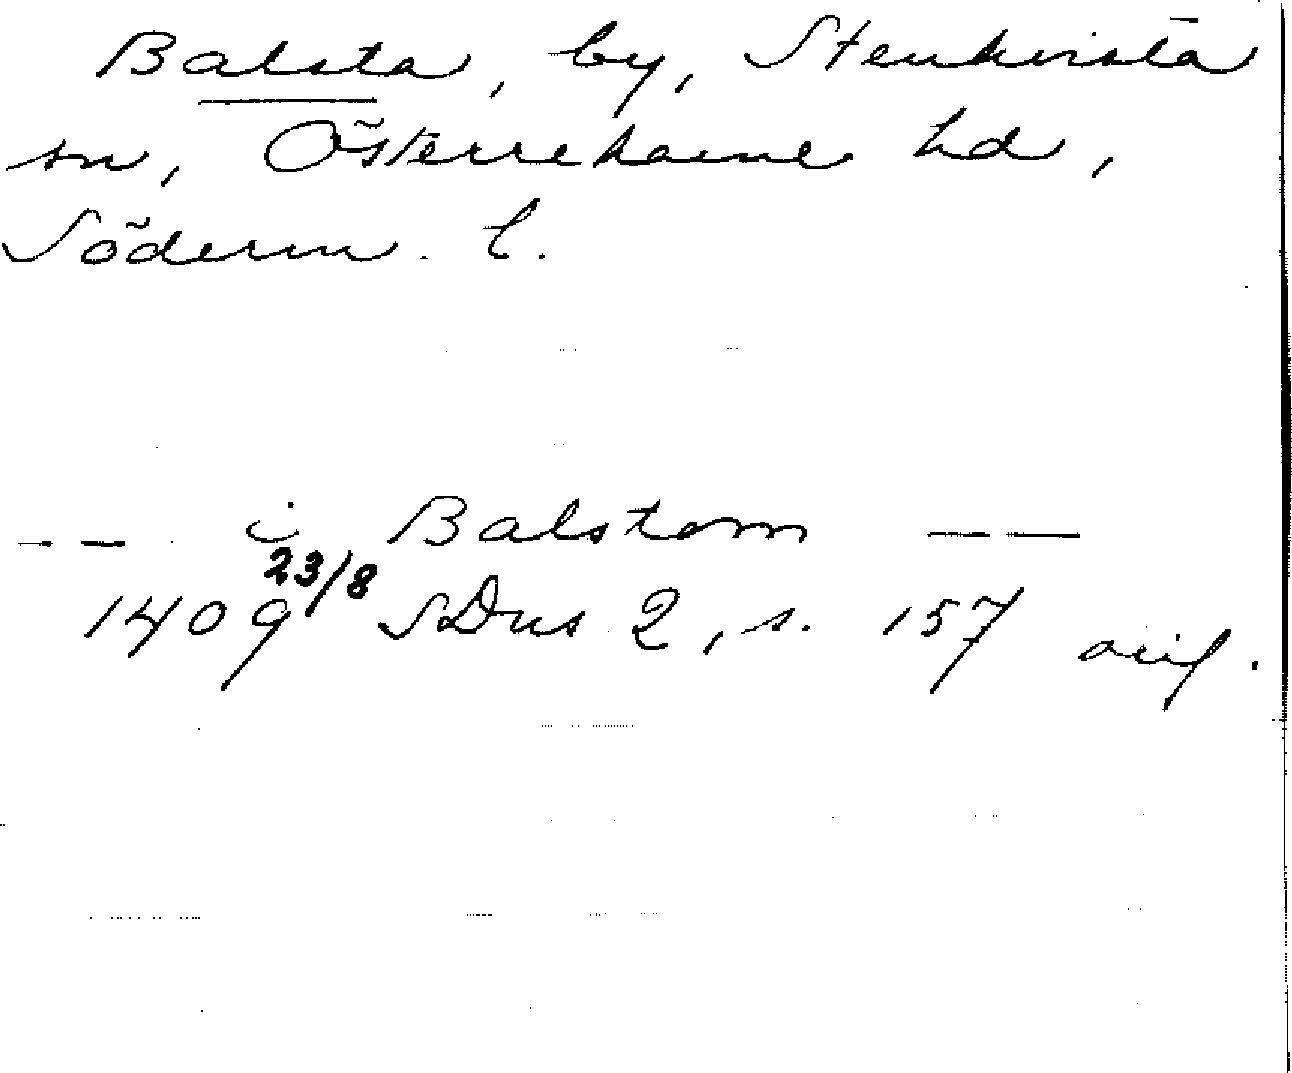 Balsta, by, Stenkvista
sn, Österrekarne hd,
Söderm. l.
-- i Balstom --
1409 23/8 SDns 2, s. 157 orig.